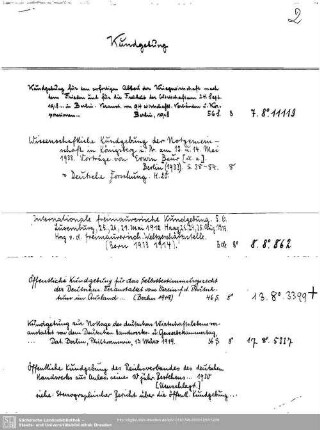 2
Kundgebung
Kundgebung für den sofortigen Abbau der Kriegswirtschaft nach
dem Frieden und für die Freiheit des Wirtschaftslebens 24. Sept.
1918 in Berlin. Veranst. von 94 wirtschaftl. Verbänden u. Kor-
porationen... Berlin, 1918 56 S. 8 7. 8° 11113
Wissenschaftliche Kundgebung der Notgemein-
schaft in Königsberg i. Pr. am 13. u. 14. Mai
1938. Vorträge von Erwin Baur [u. a.].
Berlin (1938). S. 35-84. 8°
= Deutsche Forschung. H. 23
Internationale freimaurerische Kundgebung. 5. 6.
Luxemburg, 25., 26., 27. Mai 1912. Haag 23., 24., 25. Aug. 1913.
Hrsg. v. d. freimaurerisch. Weltgeschäftsstelle.
(Bern 1913 1914). 8° 8. 8° 862
Öffentliche Kundgebung für das Selbstbestimmungsrecht
der Deutschen Veranstaltet vom Verein f. d. Deutsch-
tum im Ausland ... (Berlin 1919) 46 S. 8° 13. 8° 3399+
Kundgebung zur Notlage des deutschen Wirtschaftslebens ver-
anstaltet von dem Deutschen Handwerks- u. Gewerbekammertag,
... Dat. Berlin, Philharmonie, 13. März 1919. 36 S 8° 17. 8° 5117
Öffentliche Kundgebung des Reichsverbandes des deutschen
Handwerks aus Anlass seines 10 jähr. Bestehens... 1930
[Umschlagt.]
siehe Stenographischer Bericht über die öffentl. Kundgebung...